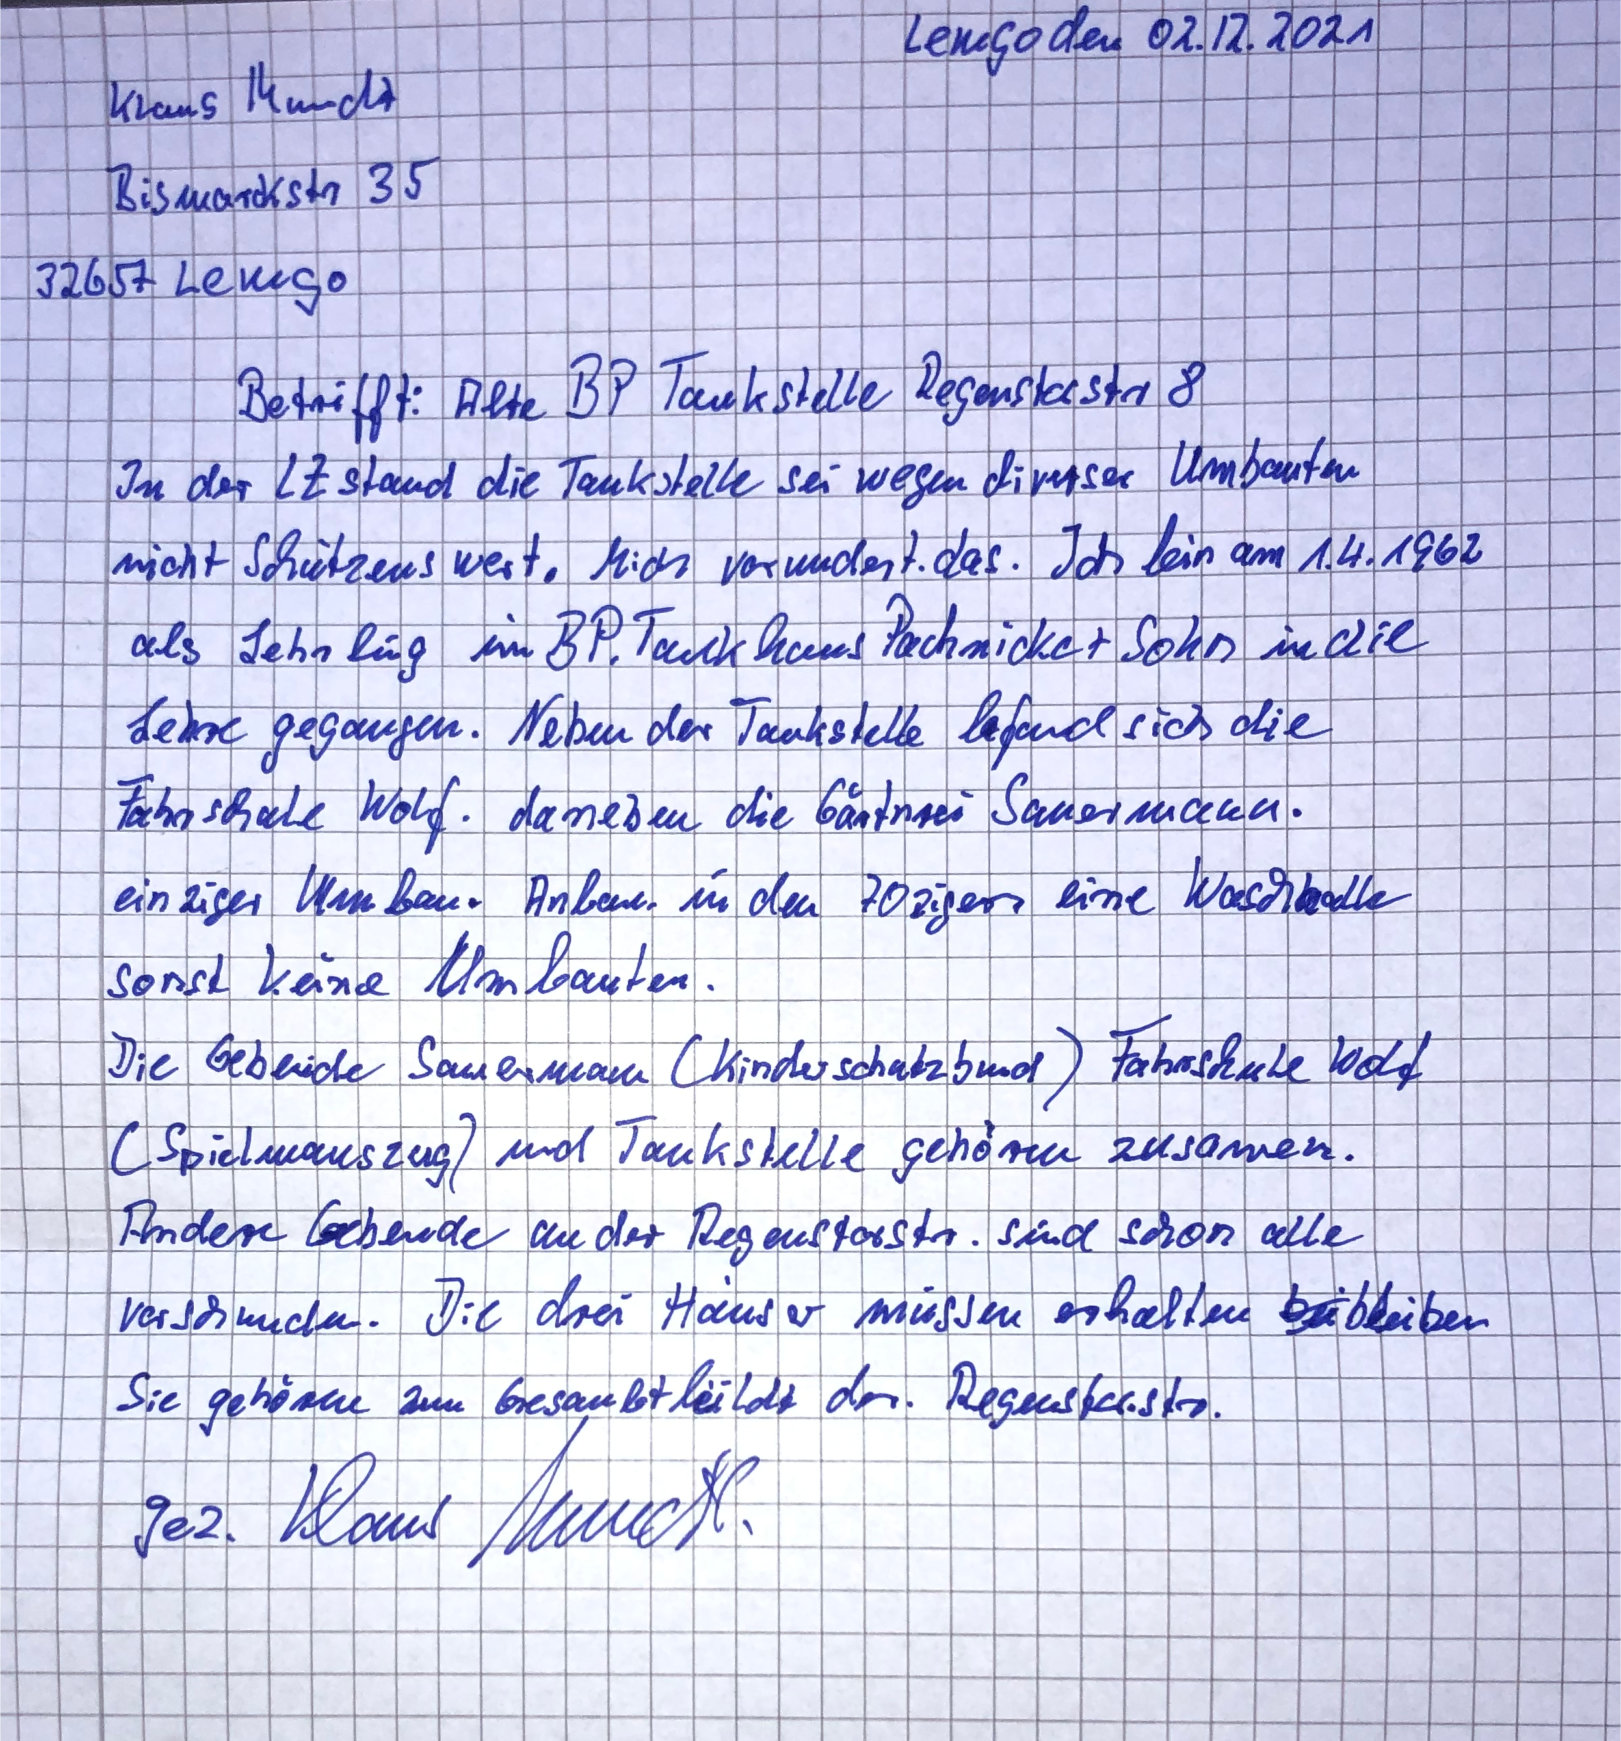 Lemgo den 02.12.2021
Klaus Mundt
Bismarckstr 35
32657 Lemgo
Betrifft: Alte BP Tankstelle Regenstorstr 8
In der LZ stand die Tankstelle sei wegen diverser Umbauten
nicht Schützens wert. Mich verwundert. das. Ich bin am 1.4.1962
als Lehrling im BP. Tankhaus Pachnicke + Sohn in die
Lehre gegangen. Neben der Tankstelle befand sich die
Fahrschule Wolf. daneben die Gärtnrei Sauermann.
einziger Umbau. Anbau. in den 70zigern eine Waschhalle
sonst keine Umbauten.
Die Gebeude Sauermann (Kinderschutzbund) Fahrschule Wolf
(Spielmanszug) und Tankstelle gehören zusamen.
Andere Gebeude an der Regenstorstr. sind schon alle
verschwunden. Die drei Häuser müssen erhalten bleiben
Sie gehören zum Gesamtbild der. Regenstorstr.
gez. Klaus Mundt.